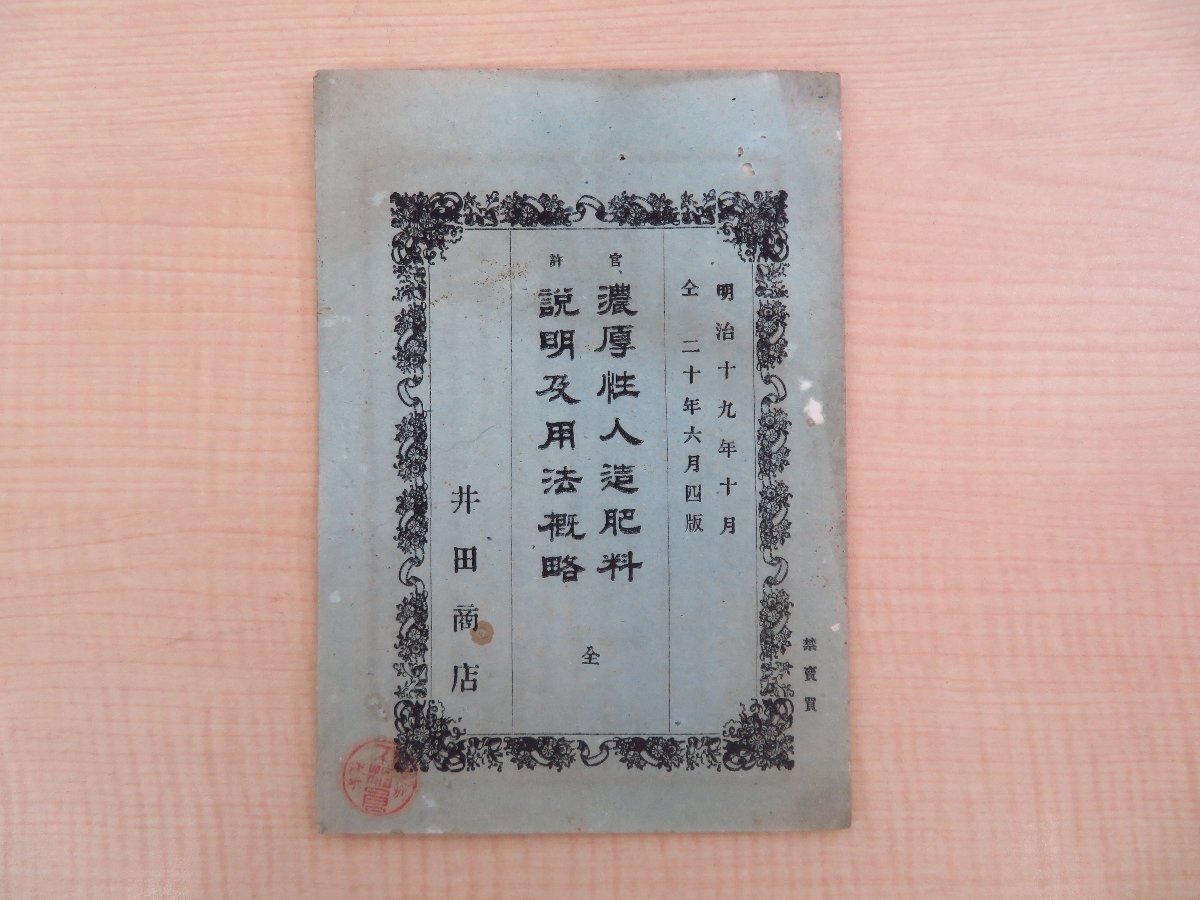 明治十九年十月
仝 二十年六月四版
官許
濃厚性人造肥料
説明及用法概略
全
井田商店
禁賣買